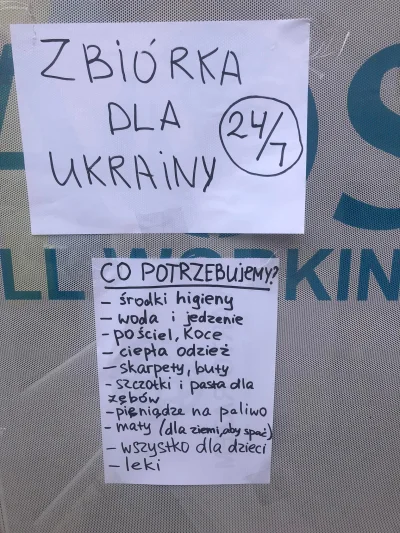 ZBIÓRKA
DLA
24/7
UKRAINY
CO POTRZEBUJEMY?
LL WORKIN
- środki higieny
- woda i jedzenie
- pościel, koce
- ciepła odzież
- skarpety, buty
- szczotki i pasta dla
zębów
- pieniądze na paliwo
- maty (dla ziemi, aby spać)
- wszystko dla dzieci
- leki